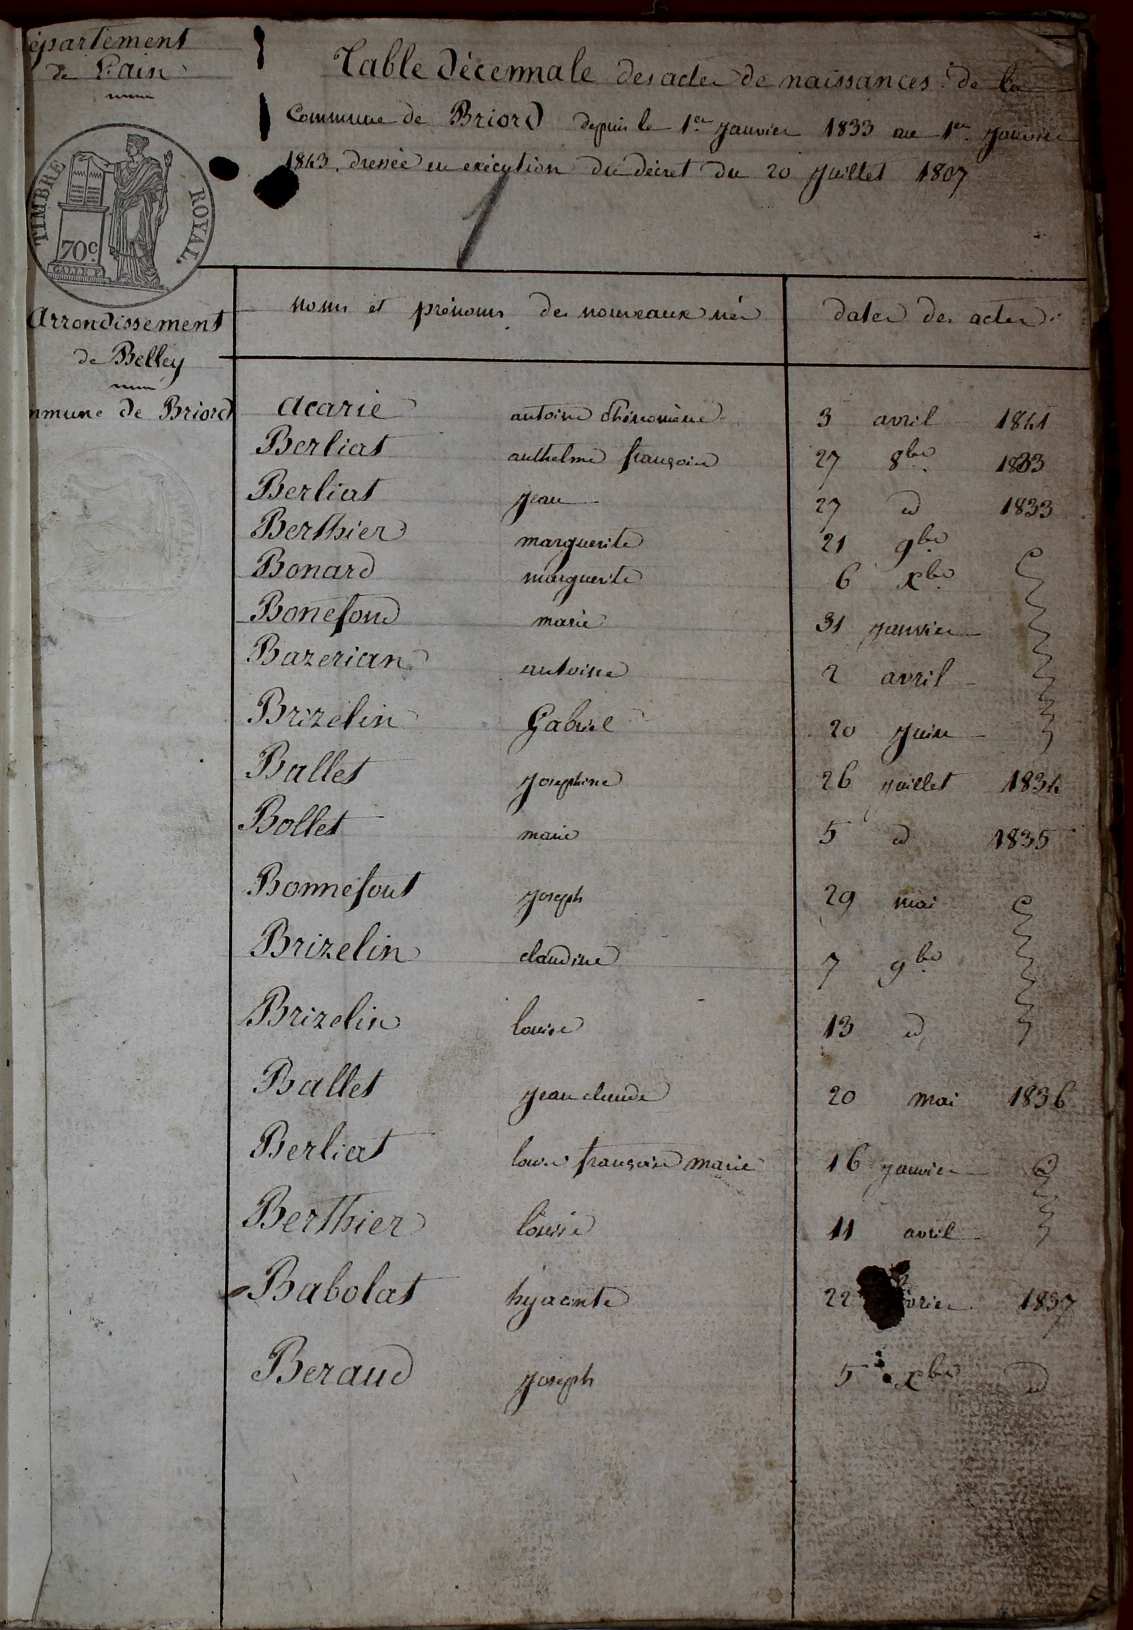 épartement
de l'ain
TIMBRE ROYAL
70c
Arrondissement
de Belley
mmune de Briord
Table Décennale des actes de naissances de la
Commune de Briord depuis le 1er janvier 1833 au 1er janvier
1843, dressée en exécution du décret du 20 juillet 1807
1
noms et prénoms des nouveaux nés dates des actes
acarie antoine 3 avril 1841
Berliat anthelme françois 27 8bre 1833
Berliat jean 27 id 1833
Berthier marguerite 21 9bre
Bonard marguerite 6 Xbre
Bonefond marie 31 janvier
Bazerian antoine 2 avril
Brizelin Gabriel 20 juin
Ballet josephine 26 juillet 1834
Bollet marie 5 id 1835
Bonnefont joseph 29 mai
Brizelin claudine 7 9bre
Brizelin louise 13 id
Ballet jean claude 20 mai 1836
Berliat louise françoise marie 16 janvier
Berthier louise 11 avril
Babolat hyacinte 22 1837
Beraud joseph 5 Xbre id